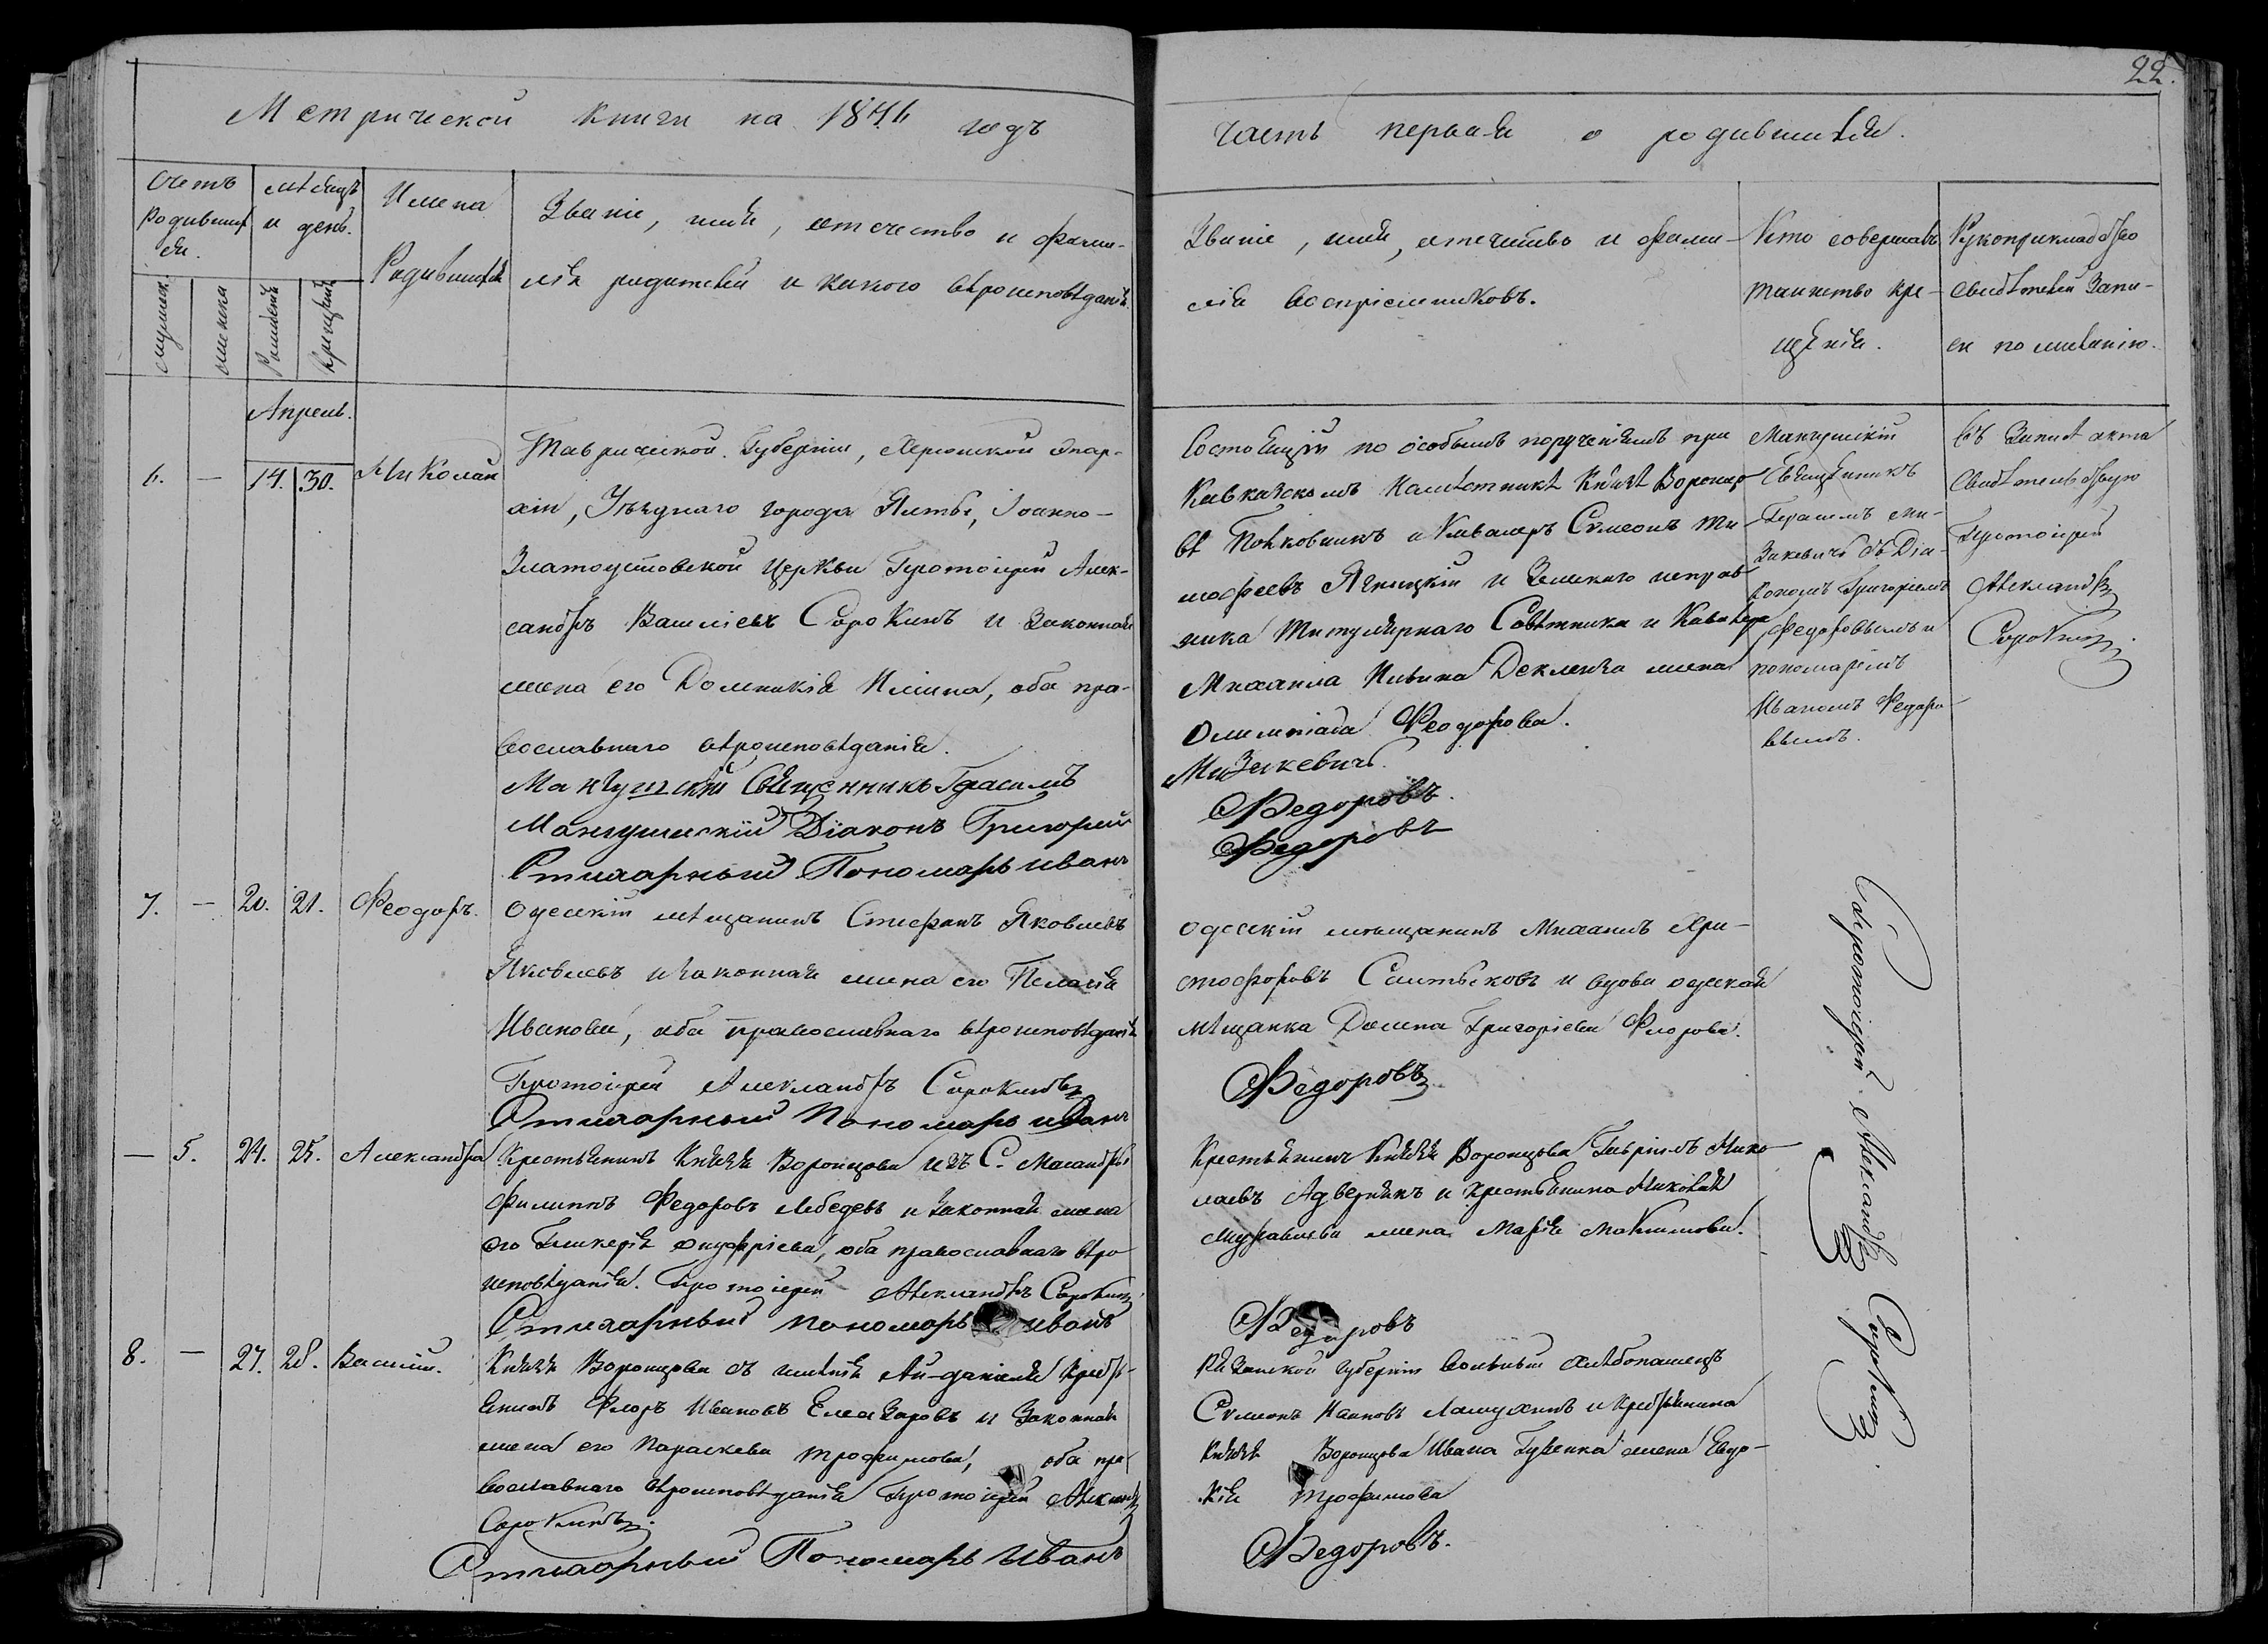 22.
Метрической книги на 1846 годъ
часть первая о родившихся.
Счетъ родившихся.
мужеска
женска
Мѣсяцъ и день.
Рожденія
Крещенія
Имена Родившихся
Званіе, имя, отчество и фами-
лія родителей и какого вѣроисповѣданія.
Званіе, имя, отечество и фами-
лія воспріемниковъ.
Кто совершалъ
таинство кре-
щенія.
Рукоприкладство
свидѣтелей запи-
си по желанію.
Апрель.
6. — 14. 30. Николай
Таврической Губерніи, Херсонской Эпар-
хіи, Уѣзднаго города Ялты, Іоанно-
Златоустовской церкви Протоіерей Алек-
сандръ Васильевъ Сорокинъ и законная
жена его Домникія Ильина, оба пра-
вославнаго вѣроисповѣданія.
Мангушскій Священникъ Герасимъ
Мангушскій Діаконъ Григорій
Стихарный Пономарь Иванъ
Состоящій по особымъ порученіямъ при
Кавказскомъ Намѣстникѣ Князѣ Воронцо-
вѣ Полковникъ и Кавалеръ Сѵмеонъ Ти-
мофеевъ Ягницкій и Земскаго исправ-
ника Титулярнаго Совѣтника и Кавалера
Михаила жена
Олимпіада Феодорова.
Мизкевичъ.
Федоровъ.
Федоровъ
Мангушскій
Священникъ
Герасимъ Ми-
зкевичъ съ Діа-
кономъ Григоріемъ
Федоровымъ и
пономаремъ
Иваномъ Федоро-
вымъ.
Въ записѣ акта
свидѣтельствую
Протоіерей
Александръ
Сорокинъ.
7. — 20. 21. Феодоръ.
Одесскій мѣщанинъ Стефанъ Яковлевъ
Яковлевъ и законная жена его Пелагія
Иванова, оба православнаго вѣроисповѣданія
Протоіерей Александръ Сорокинъ
Стихарный Пономарь Иванъ
Одесскій мѣщанинъ Михаилъ Хри-
стофоровъ Салтыковъ и вдова одесская
мѣщанка Домна Григорьева Фролова.
Федоровъ
— 5. 24. 25. Александра
Крестьянинъ Князя Воронцова изъ С. Масандры
Филиппъ Федоровъ Лебедевъ и законная жена
его Гликерія Онуфріева, оба православнаго вѣро
исповѣданія. Протоіерей Александръ Сорокинъ
Стихарный Пономарь Иванъ
Крестьянинъ Князя Воронцова Гавріилъ Нико
лаевъ и крестьянина Николая
Муравьева жена Марія Максимова.
Федоровъ
8. — 27. 28. Василій.
Князя Воронцова съ имѣнія Ай-даниля Кресть-
янинъ Флоръ Ивановъ Елеазаровъ и законная
жена его Параскева Трофимова, оба пра-
вославнаго вѣроисповѣданія Протоіерей Александръ
Сорокинъ.
Стихарный Пономарь Иванъ
Рязанской губерніи вольный хлѣбопашецъ
Сѵмеонъ и крестьянина
Князя Воронцова Ивана жена Евдо-
кія Трофимова
Федоровъ.
Протоіерей Александръ Сорокинъ.